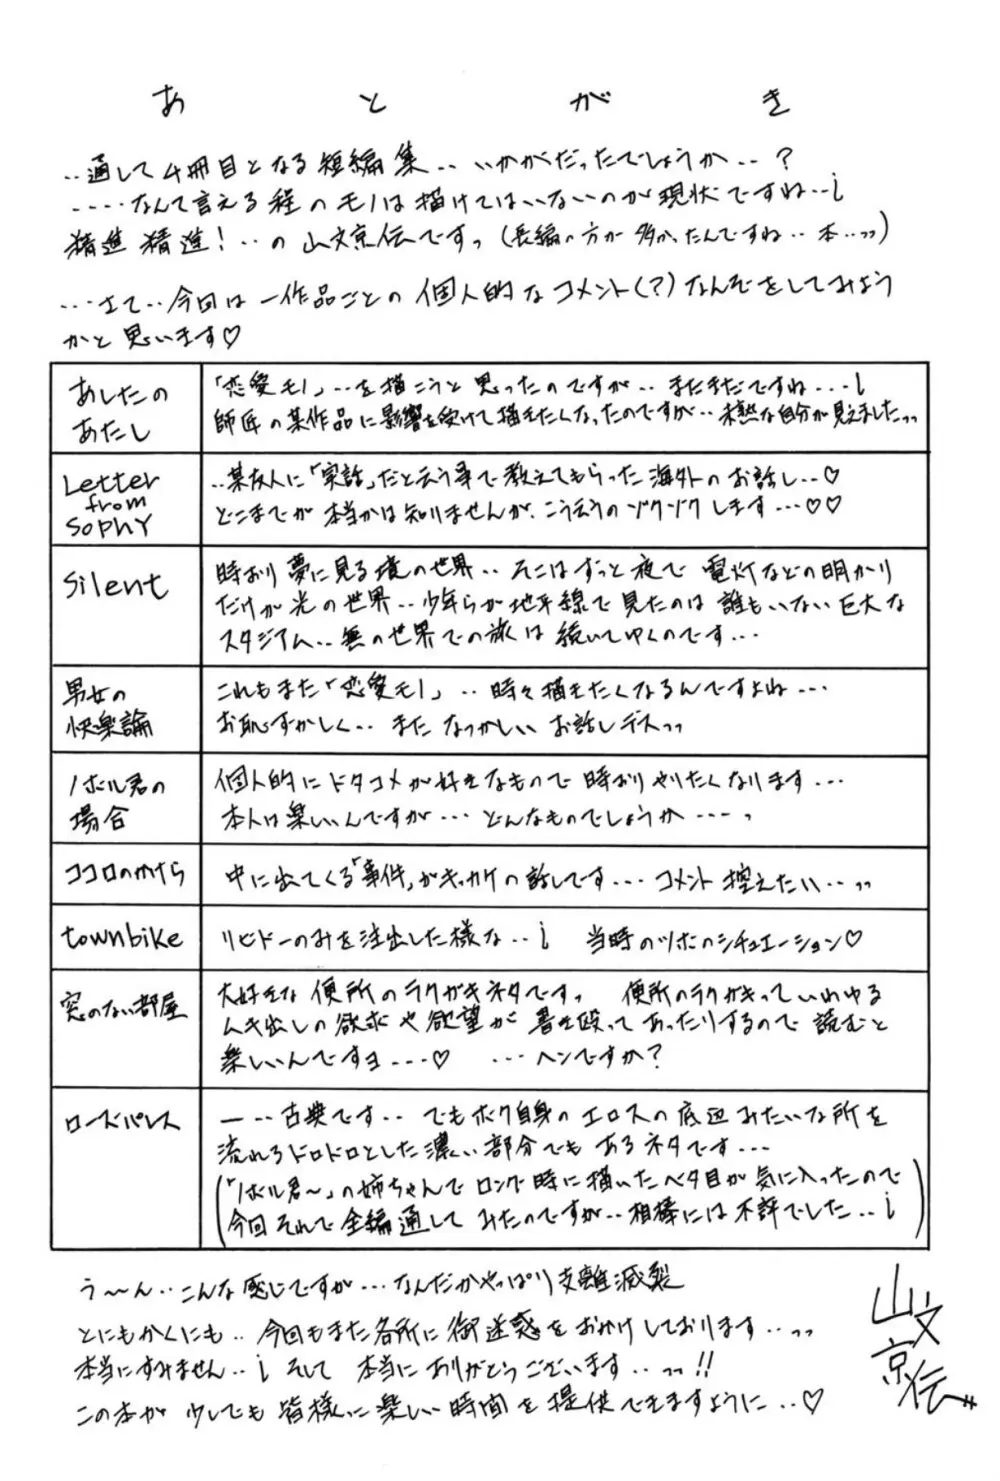 あとがき
‥通して4冊目となる短編集‥いかがだったでしょうか‥?
‥‥なんて言える程のモノは描けてはいないのが現状ですね‥¡
精進 精進!‥の 山文京伝ですっ(長編の方が多かったんですね‥本‥ッッ)
‥さて‥今回は一作品ごとの個人的なコメント(?)なんぞをしてみよう
かと思います♡
あしたの
あたし
「恋愛モノ」‥を描こうと思ったのですが‥まだまだですね‥¡
師匠の某作品に影響を受けて描きたくなったのですが‥未熟な自分が見えましたッッ
Letter
from
SOPHY
‥某友人に「実話」だと云う事で教えてもらった海外のお話し‥♡
どこまでが本当かは知りませんが、こう云うのゾクゾクします‥♡♡
Silent
時おり夢に見る境の世界‥そこはずっと夜で電灯などの明かり
だけが光の世界‥少年らが地平線で見たのは誰もいない巨大な
スタジアム‥無の世界での旅は続いてゆくのです‥
男女の
快楽論
これもまた「恋愛モノ」‥時々描きたくなるんですよね‥
お恥ずかしく‥また なつかしい お話しデスッッ
ノボル君の
場合
個人的にドタコメが好きなもので時おりやりたくなります‥
本人は楽しいんですが‥どんなものでしょうか‥っ
ココロのかけら
中に出てくる「事件」がキッカケの話しです‥コメント控えたい‥ッッ
townbike
リビドーのみを注出した様な‥¡ 当時のツボのシチュエーション♡
窓のない部屋
大好きな便所のラクガキネタですっ 便所のラクガキっていわゆる
ムキ出しの欲求や欲望が書き殴ってあったりするので読むと
楽しいんですヨ‥♡ ‥ヘンですか?
ローズパレス
―‥古典です‥でもボク自身のエロスの底辺みたいな所を
流れるドロドロとした濃い部分でもあるネタです‥
(「ノボル君~」の姉ちゃんでロング時に描いたベタ目が気に入ったので
今回それで全編通してみたのですが‥相棒には不評でした‥¡)
う~ん‥こんな感じですが‥なんだかやっぱり支離滅裂
とにもかくにも‥今回もまた各所に御迷惑をおかけしております‥ッッ
本当にすみません‥¡ そして 本当にありがとうございます‥ッッ!!
この本が少しでも皆様に楽しい時間を提供できますように‥♡
山文
京伝